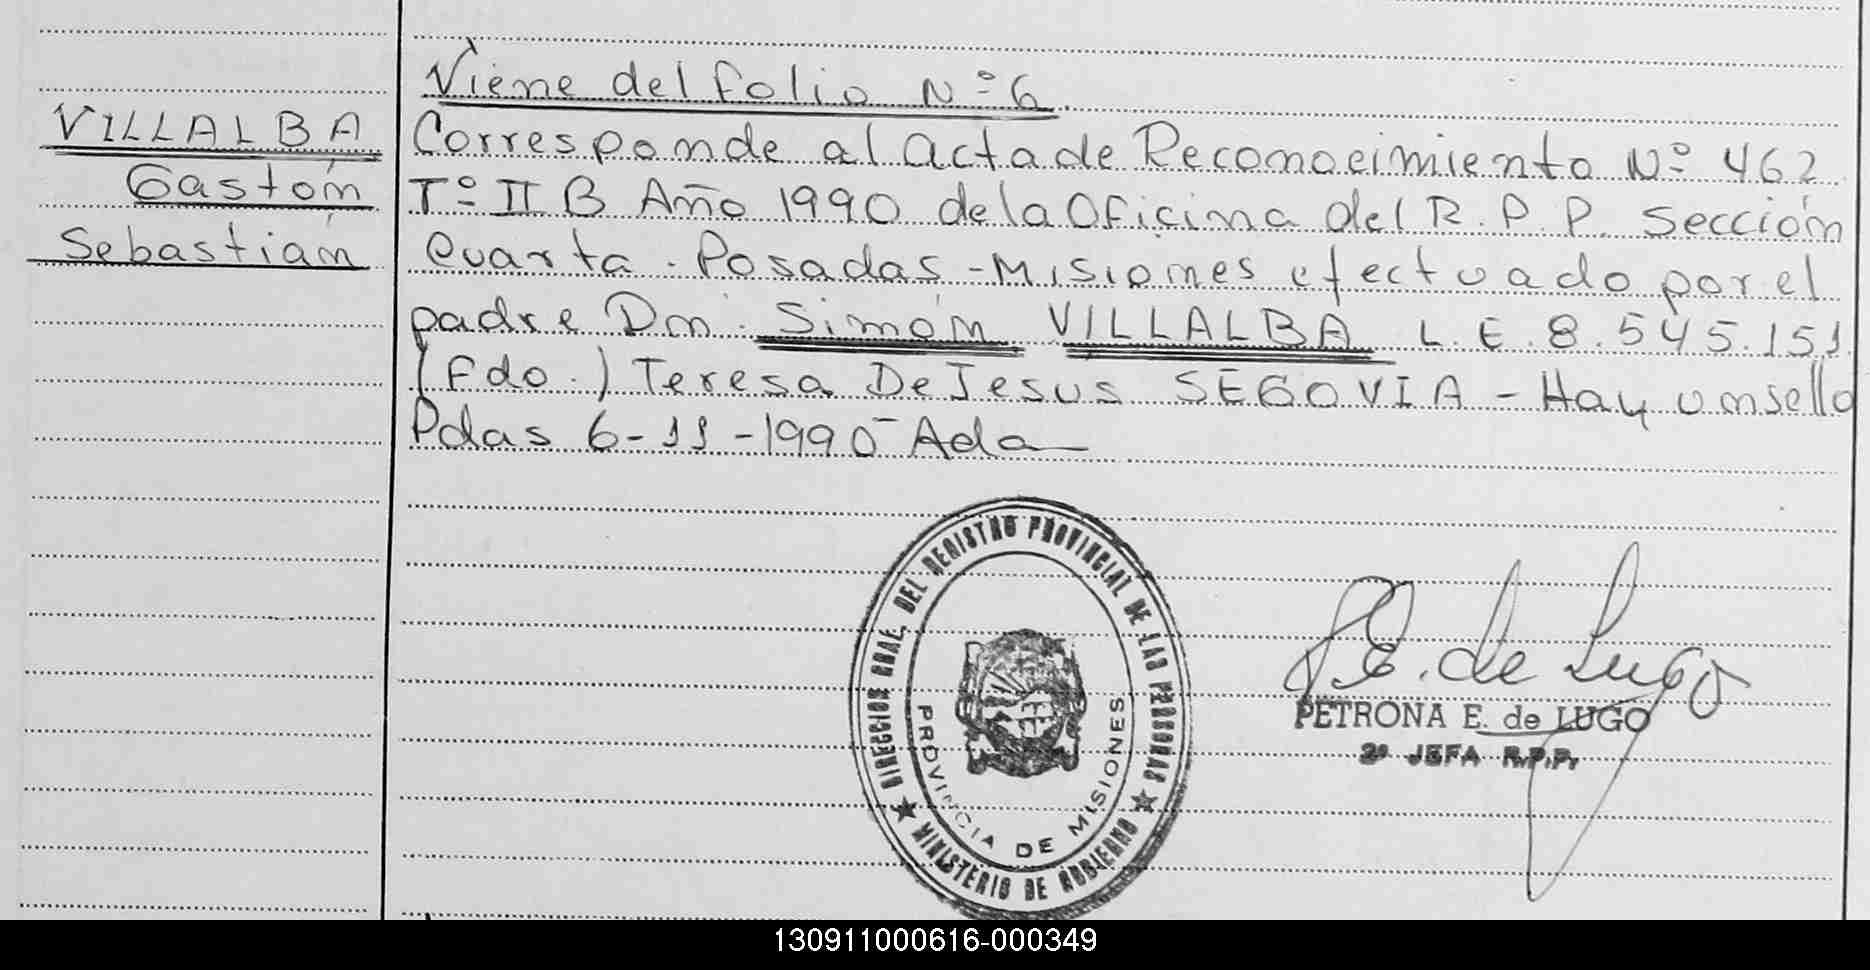 Viene del folio Nº 6
VILLALBA
Gastón
Sebastián
Corresponde al acta de Reconocimiento Nº 462
Tº II B Año 1990 de la Oficina del R.P.P. Sección
Cuarta. Posadas - Misiones efectuado por el
padre Dn. Simón VILLALBA L.E. 8.545.151
(Fdo.) Teresa De Jesus SEGOVIA - Hay un sello
Pdas 6-11-1990 - Ada
DIRECCION GRAL. DEL REGISTRO PROVINCIAL DE LAS PERSONAS
★ MINISTERIO DE GOBIERNO ★
PROVINCIA DE MISIONES
P.E. de Lugo
PETRONA E. de LUGO
2º JEFA R.P.P.
130911000616-000349